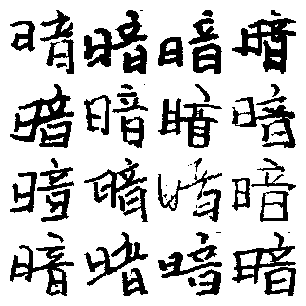 暗暗暗暗
暗暗暗暗
暗暗暗暗
暗暗暗暗